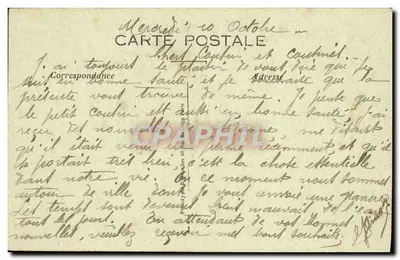 Mercredi 10 Octobre
CARTE POSTALE
Chers Cousin et cousine.
J'ai toujours le plaisir de vous dire que je
Correspondance Adresse
suis en bonne santé et je souhaite que la
présente vous trouve de même. Je pense que
le petit cousin est aussi en bonne santé, j'ai
reçu des nouvelles me disant
qu'il était venu en récemment et qu'il
se portait très bien c'est la chose essentielle
dans notre vie. En ce moment nous sommes
autour de ville dont je vous envoie une
Le temps est devenu bien mauvais de l'eau
tous les jours. En attendant de vos bonnes
nouvelles, veuillez recevoir mes bons souhaits.